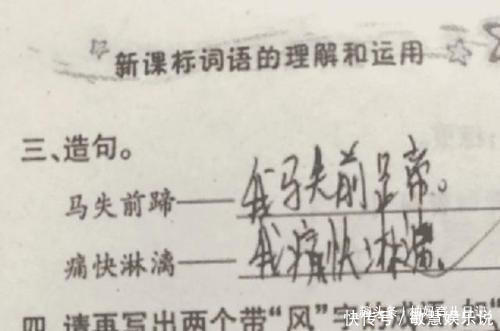 新课标词语的理解和运用
三、造句。
马失前蹄——我马失前蹄。
痛快淋漓——我痛快淋漓。
四 请再写出两个带“风”字
快传号/敏慧娱乐说